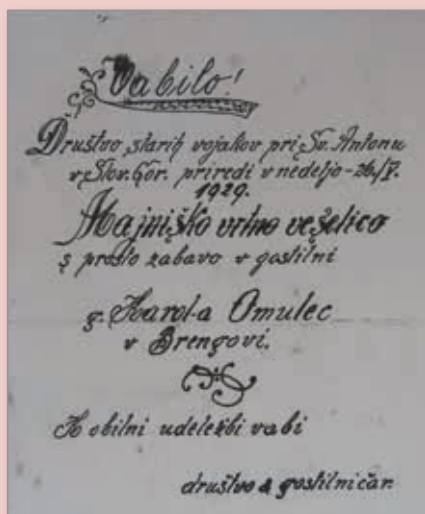 Vabilo!
Društvo starih vojakov pri Sv. Antonu
v Slov. Gor. priredi v nedeljo - 26./V.
1929.
Majniško vrtno veselico
s prosto zabavo v gostilni
g. Karol-a Omulec
v Brengovi.
K obilni udeležbi vabi
društvo & gostilničar.